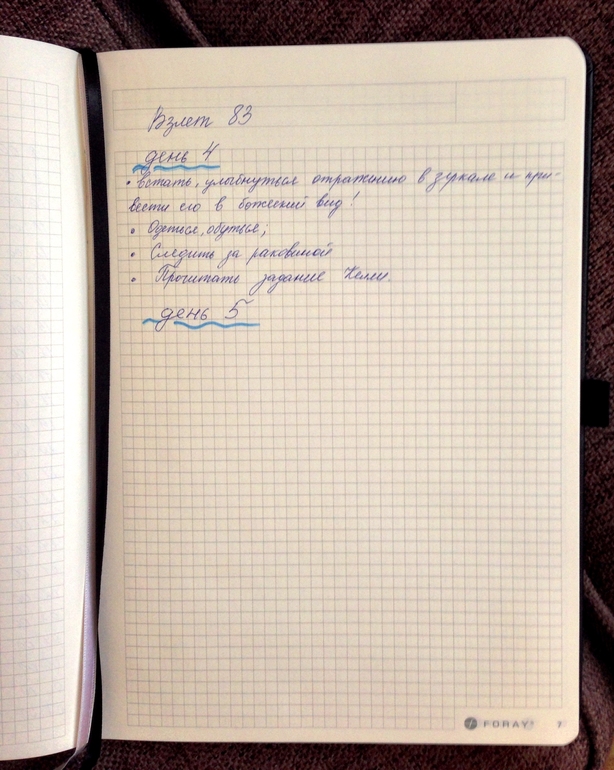 Взлет 83
день 4
• Встать, улыбнуться отражению в зеркале и при-
вести его в божеский вид!
• Одеться, обуться;
• Следить за раковиной
• Прочитать задание Келли.
день 5
FORAY® 7